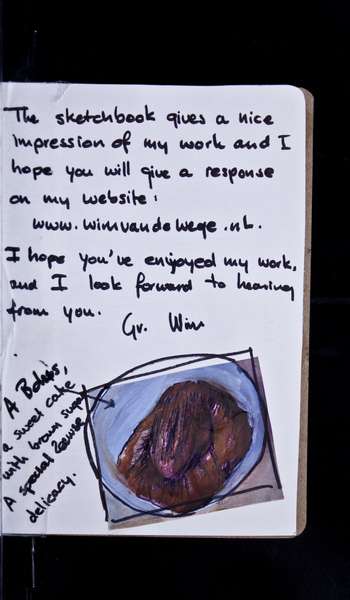 The sketchbook gives a nice
impression of my work and I
hope you will give a response
on my website:
www.wimvandewege.nl.
I hope you've enjoyed my work,
and I look forward to hearing
from you.
Gr. Wim
A Bolus,
a sweet cake
with brown sugar
A special Zeeuwse
delicacy.